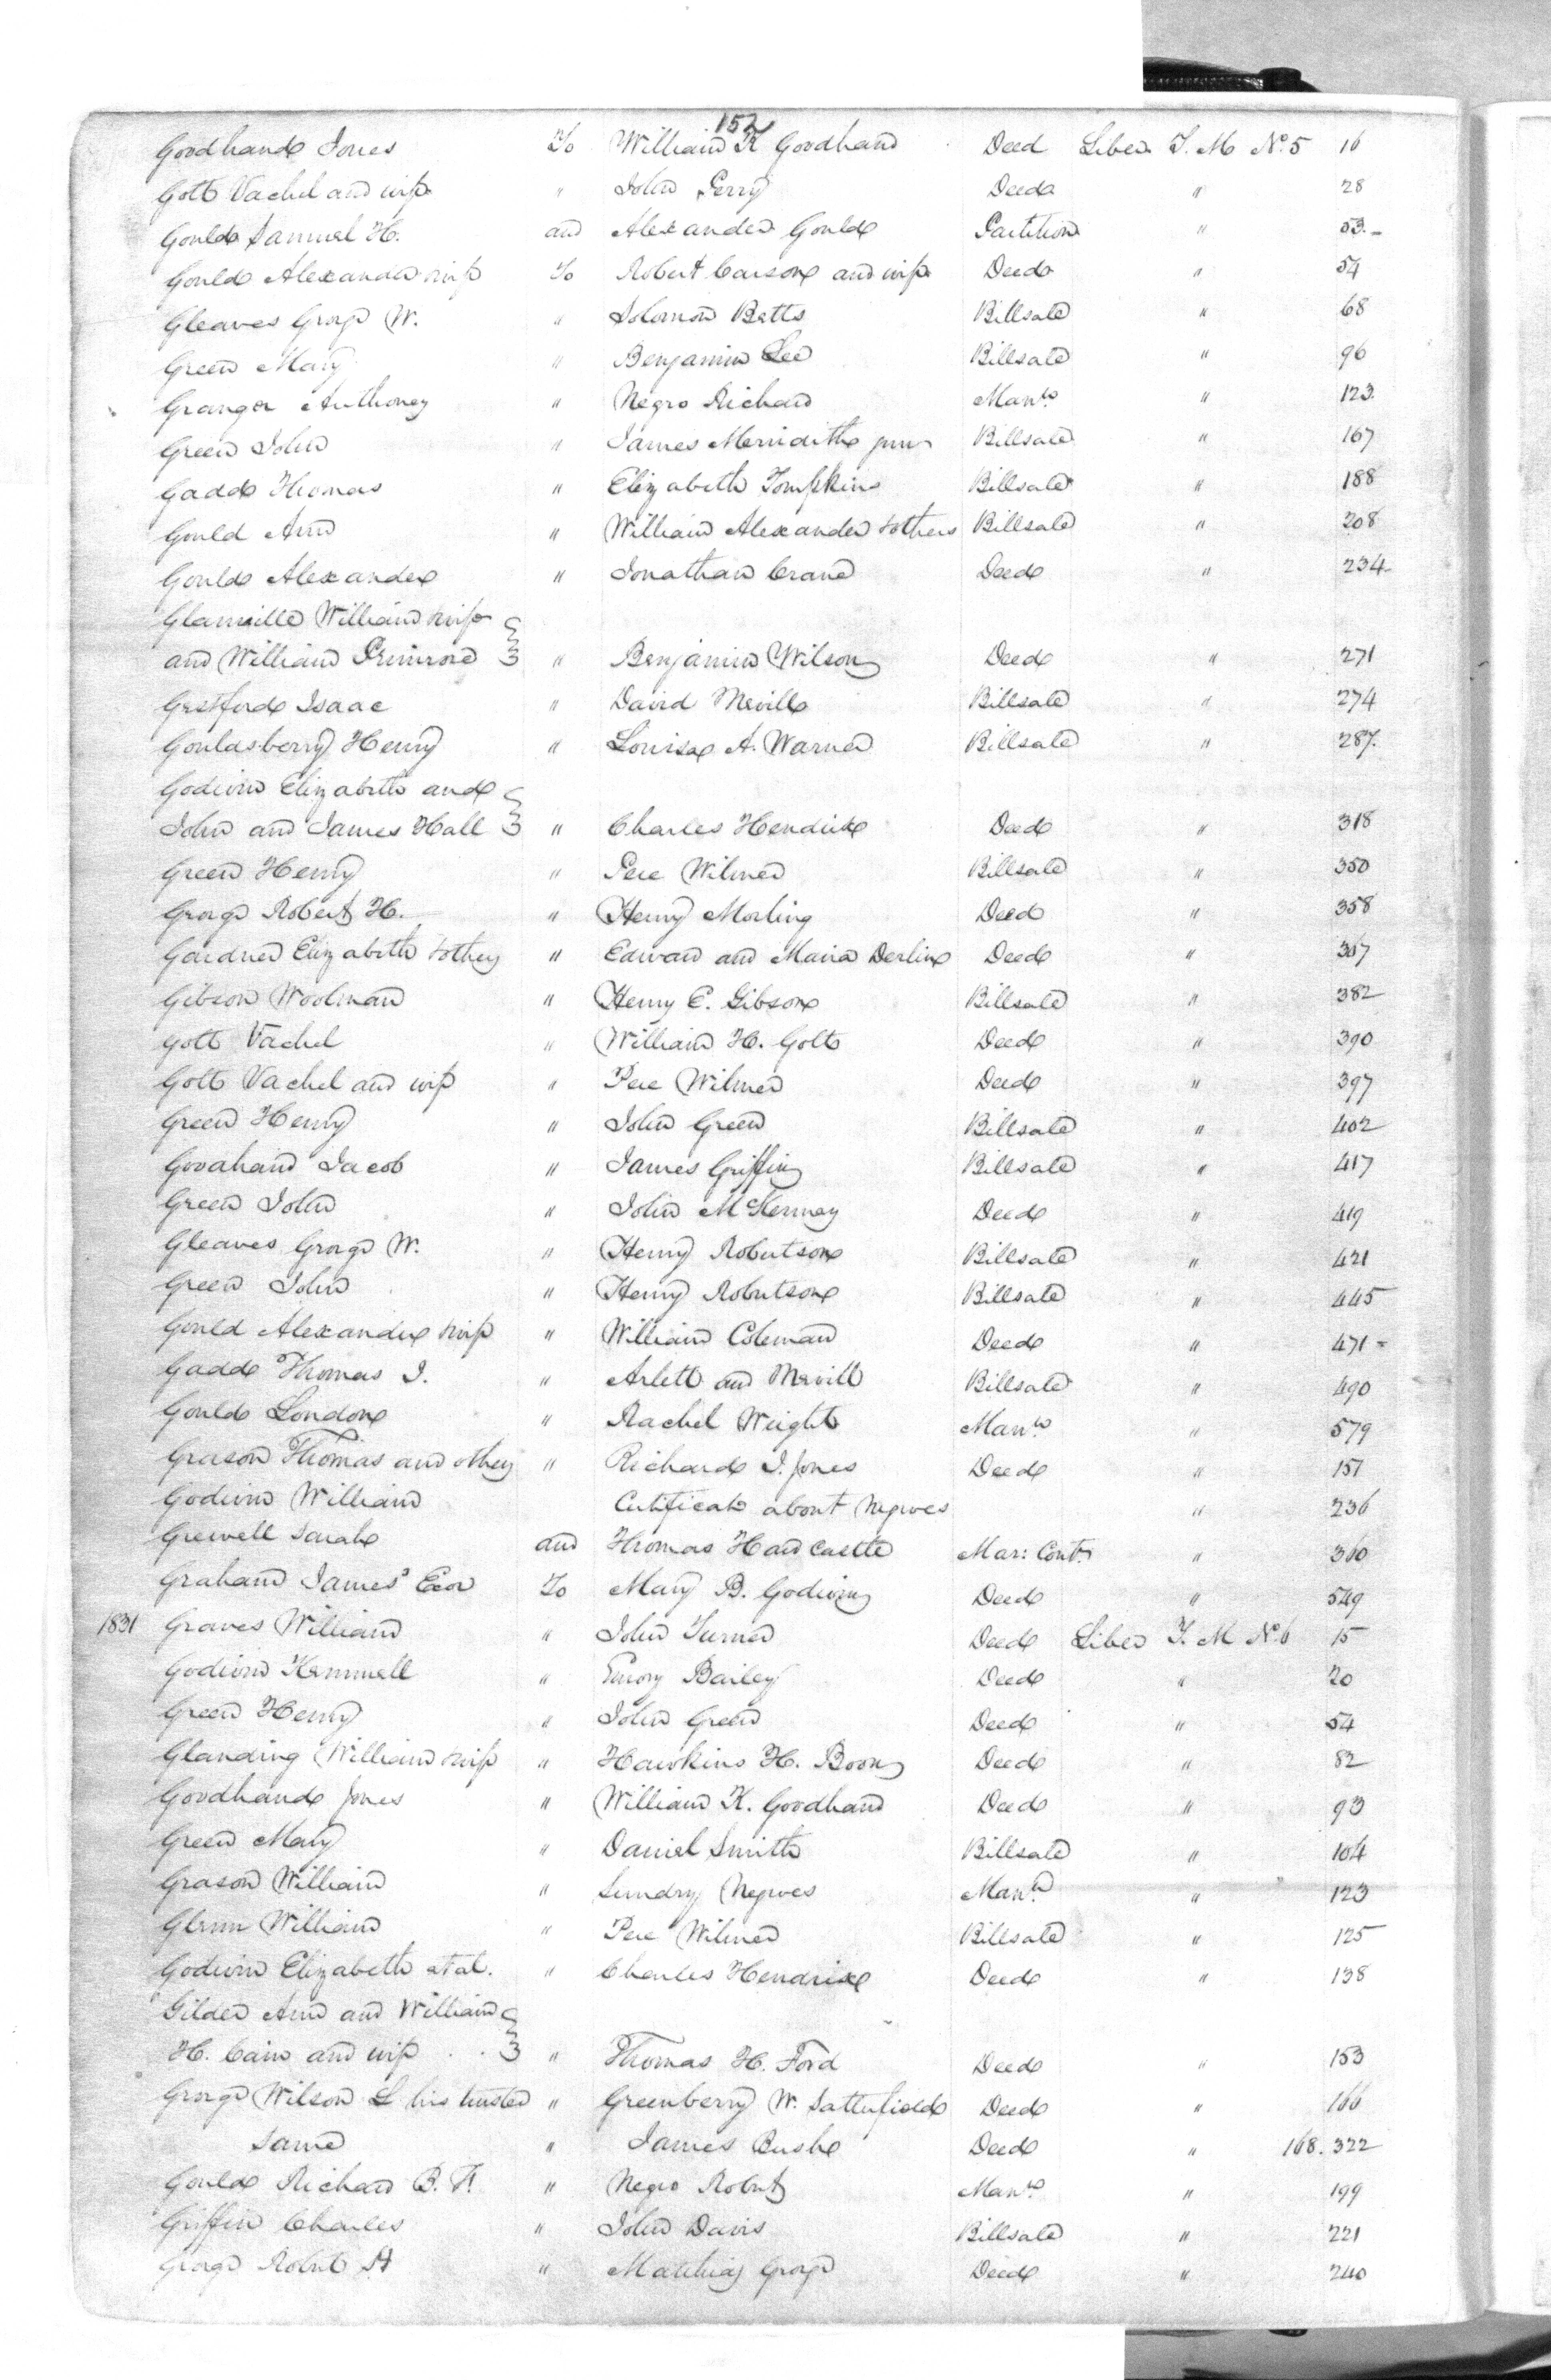 152
Goodhand Jones To William K Goodhand Deed Liber T. M No. 5 16
Golt Vachel and wife " John Perry Deed " 28
Gould Samuel H. and Alexander Gould Partition " 53.-
Gould Alexander & wife To Robert Carson and wife Deed " 54
Gleaves George W. " Solomon Betts Billsale " 68
Green Mary " Benjamin Lee Billsale " 96
Granger Anthoney " Negro Richard Mann. " 123.
Green John " James Merridith junr Billsale " 167
Gadd Thomas " Elizabeth Tompkins Billsale " 188
Gould Ann " William Alexander & others Billsale " 208
Gould Alexander " Jonathan Crane Deed " 234
Glanville William & wife
and William Primrose " Benjamin Wilson Deed " 271
Gestford Isaac " David Nevill Billsale " 274
Gouldsberry Henry " Louisa A. Warner Billsale " 287.
Godwin Elizabeth and
John and James Hall " Charles Hendrix Deed " 318
Green Henry " Pere Wilmer Billsale " 350
George Robert H. " Henry Morling Deed " 358
Gardner Elizabeth & others " Edward and Maria Derlin Deed " 367
Gibson Woolman " Henry E. Gibson Billsale " 382
Golt Vachel " William H. Golt Deed " 390
Golt Vachel and wife " Pere Wilmer Deed " 397
Green Henry " John Green Billsale " 402
Goodhand Jacob " James Griffin Billsale " 417
Green John " John McKenney Deed " 419
Gleaves George W. " Henry Robertson Billsale " 421
Green John " Henry Robertson Billsale " 445
Gould Alexander & wife " William Coleman Deed " 471 -
Gadd Thomas I. " Arlett and Nevill Billsale " 490
Gould London " Rachel Wright Mann. " 579
Grason Thomas and others " Richard I. Jones Deed " 151
Godwin William Certificate about Negroes " 236
Grewell Sarah and Thomas Hardcastle Mar: Cont. " 360
Graham James' Exor To Mary B. Godwin Deed " 549
1831 Graves William " John Turner Deed Liber T. M No. 6 15
Godwin Kemmell " Emory Bailey Deed " 20
Green Henry " John Green Deed " 54
Glanding William & wife " Hawkins H. Boon Deed " 82
Goodhand Jones " William K. Goodhand Deed " 93
Green Mary " Daniel Smith Billsale " 104
Grason William " Sundry Negroes Mann. " 123
Glenn William " Pere Wilmer Billsale " 125
Godwin Elizabeth et al. " Charles Hendrix Deed " 138
Gilder Ann and William
H. Cain and wife . . " Thomas H. Ford Deed " 153
George Wilson L his trustee " Greenberry W. Satterfield Deed " 166
Same " James Bush Deed " 168. 322
Gould Richard B. F. " Negro Robert Mann. " 199
Griffin Charles " John Davis Billsale " 221
George Robert H " Matthias George Deed " 240